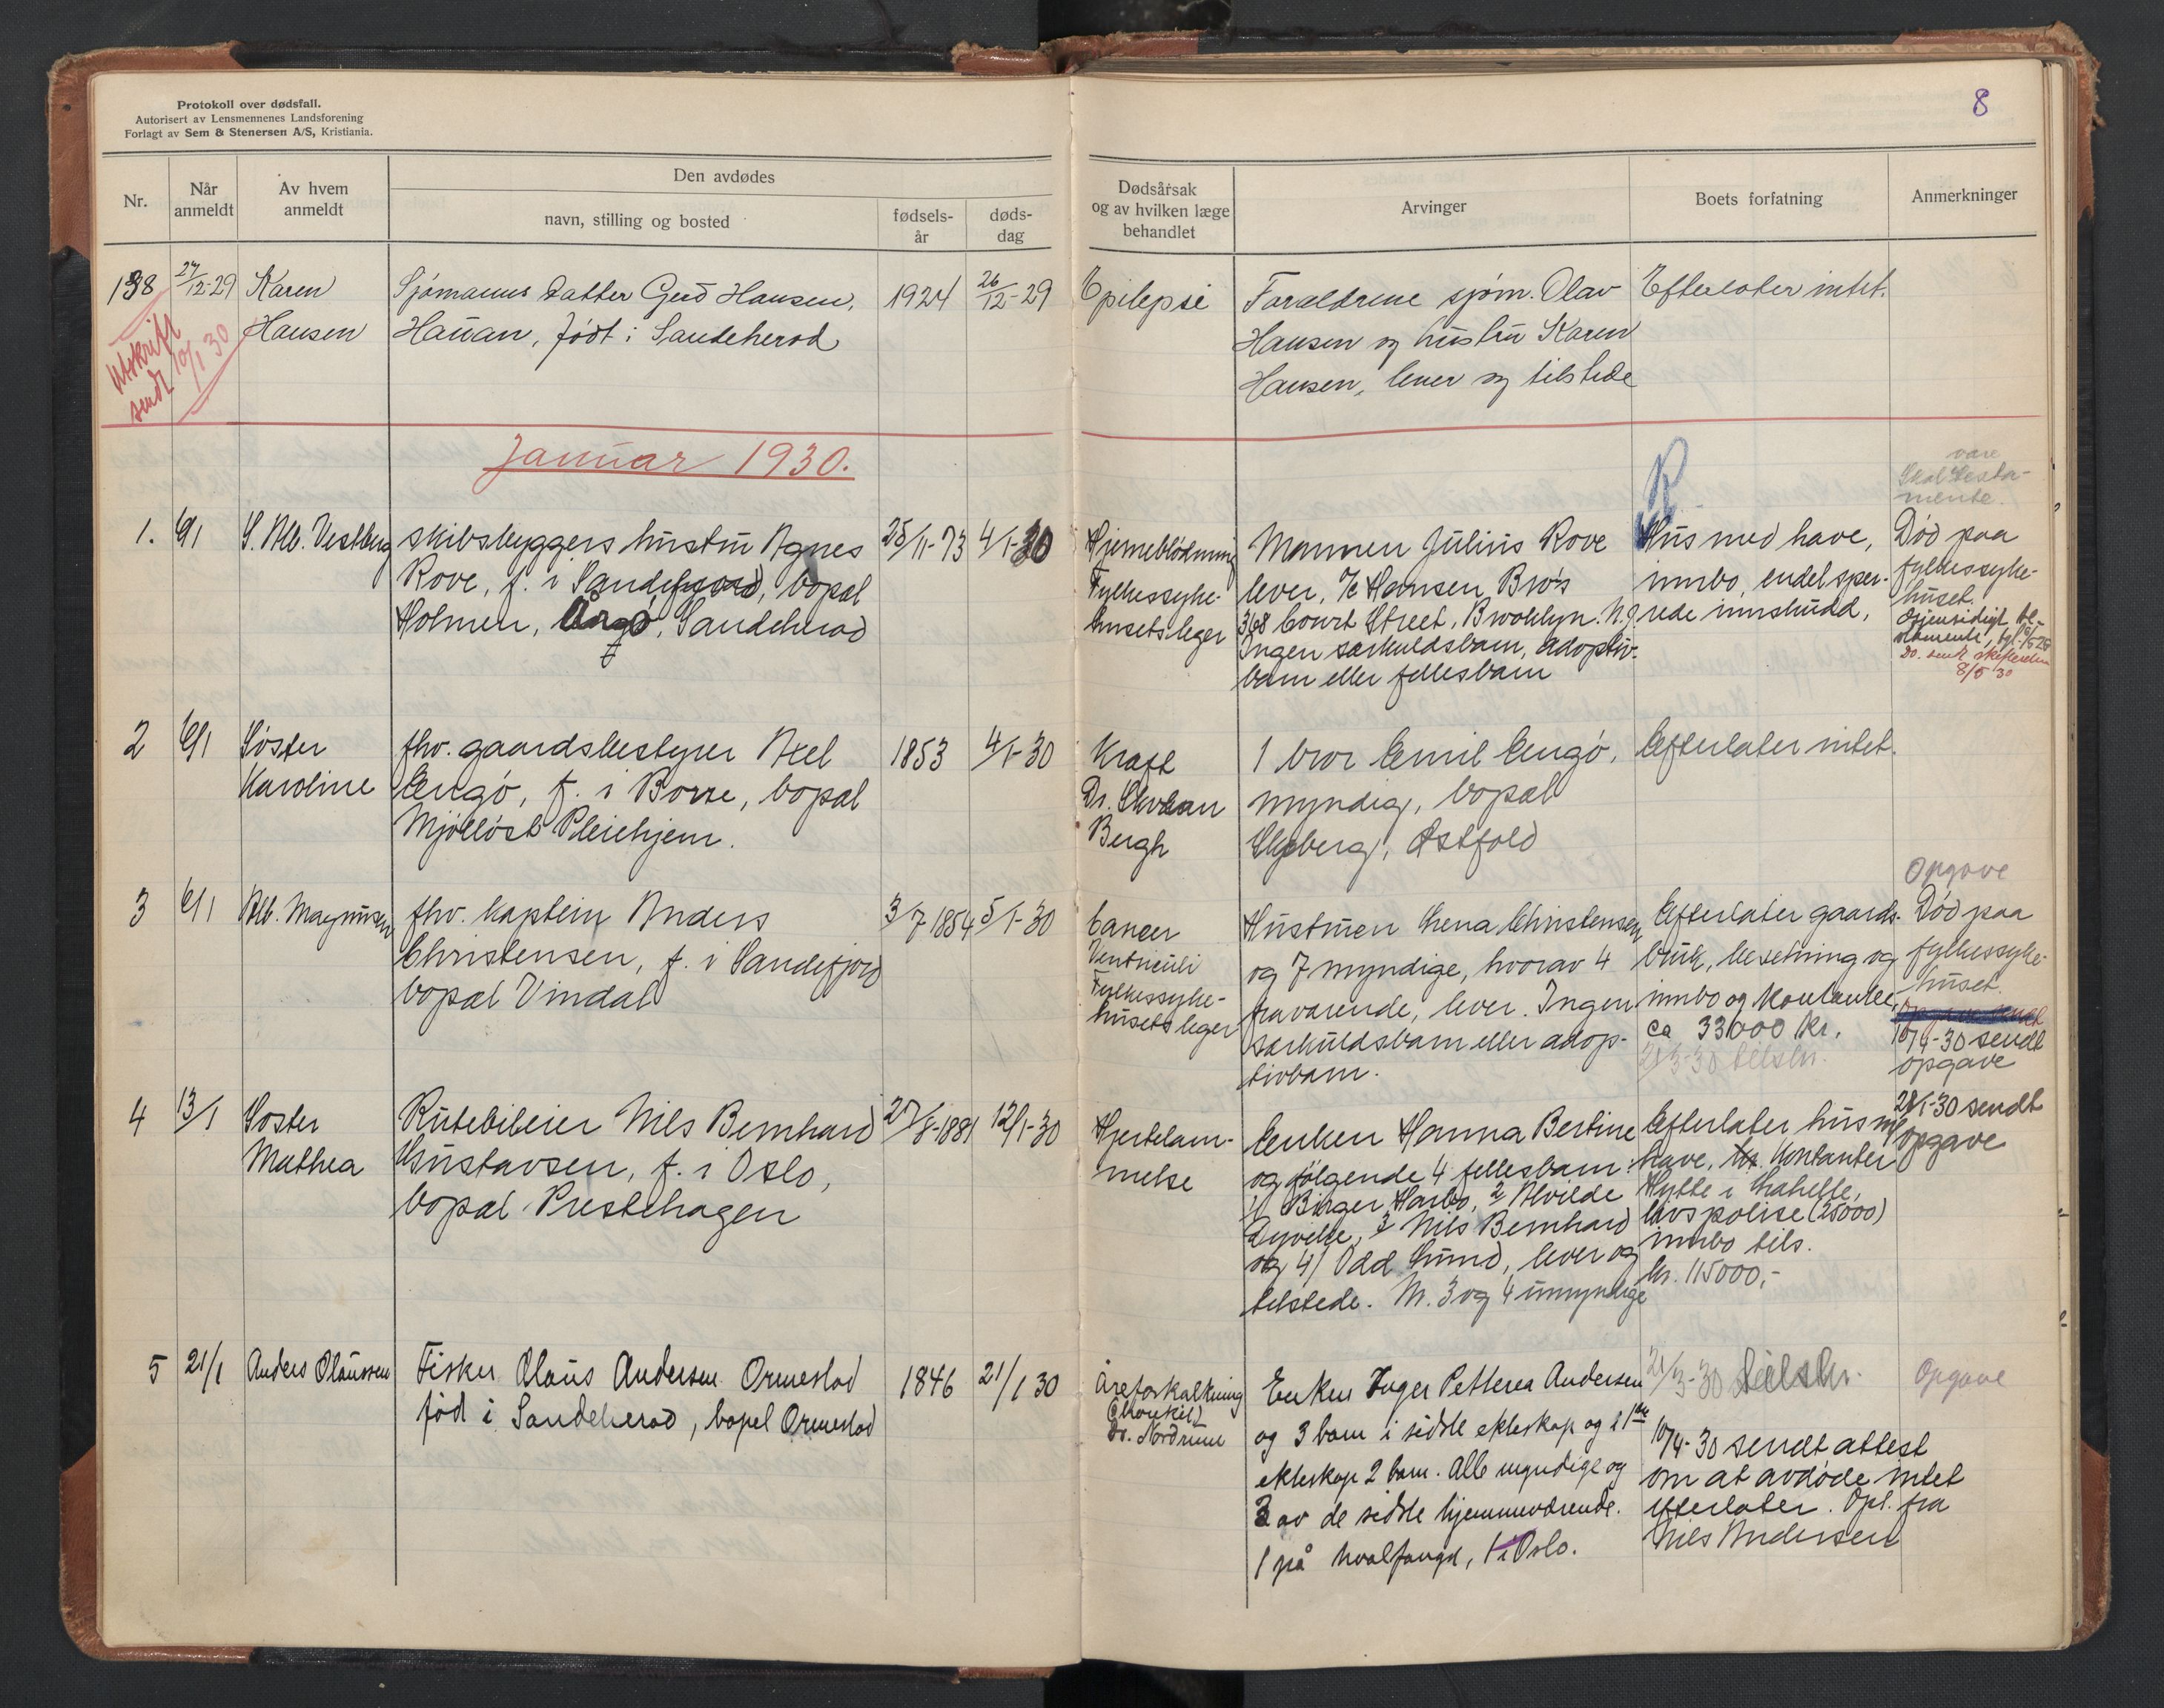 8
Protokoll over dødsfall.
Autorisert av Lensmennenes Landsforening
Forlagt av Sem & Stenersen A/S, Kristiania.
Nr.
Når
anmeldt
Av hvem
anmeldt
Den avdødes
navn, stilling og bosted
fødsels-
år
døds-
dag
Dødsårsak
og av hvilken læge
behandlet
Arvinger
Boets forfatning
Anmerkninger
138
27/12-29
Karen
Hansen
Sjømanns datter Gerd Hansen,
Hauan, født i Sandeherod
1924
26/12-29
Epilepsi
Foreldrene sjøm. Olav
Hansen og hustru Karen
Hansen, lever og tilstede
Efterlater intet.
Utskrift
sendt 10/1 30
Januar 1930.
1.
6/1
S. Alb. Vestberg
skibsbyggers hustru Agnes
Rove, f. i Sandefjord, bopæl
Holmen, Årø, Sandeherod
25/11-73
4/1-30
Hjerneblødning
Fylkessyke-
husets leger
Mannen Julius Rove
lever, c/o Hansen Bro's
368 Court Street, Brooklyn. N.J
Ingen særkuldsbarn, adoptiv-
barn eller fellesbarn
Hus med have,
innbo, endel spar-
rede innskudd,
være
Skal testa-
mente.
Død paa
fylkessyke-
huset
Gjensidigt te-
stamente,
Do. sendt skifteretten
8/5 30
2
6/1
Søster
Karoline
fhv. gaardsbestyrer Axel
Engø, f. i Borre, bopæl
Mjølløst Pleiehjem.
1853
4/1-30
Kræft
Dr.
Bergh
1 bror Emil Engø,
myndig, bopæl
Skjeberg, Østfold
Efterlater intet.
3
6/1
Alb. Magnussen
fhv. kaptein Anders
Christensen, f. i Sandefjord
bopæl Vindal
3/7 1854
5/1-30
Cancer
Ventriculi
Fylkessyke-
husets leger
Hustruen Lena Christensen
og 7 myndige, hvorav 4
fraværende, lever. Ingen
særkuldsbarn eller adop-
tivbarn.
Efterlater gaards-
bruk, besetning og
innbo og kontanter,
ca 33000 kr.
21/3-30 tilskr.
Opgave
Død paa
fylkessyke-
huset.
Opgave sendt
10/4-30 sendt
opgave
4
13/1
Søster
Mathea
Rutebileier Nils Bernhard
Gustavsen, f. i Oslo,
bopæl Prestehagen
27/8-1881
12/1-30
Hjertelam-
melse
Enken Hanna Bertine
og følgende 4 fellesbarn:
1/ Birger Harbo, 2/ Alvilde
Dyveke, 3 Nils Bernhard
og 4/ Odd Lund, lever og
tilstede. Nr. 3 og 4 umyndige
Efterlater hus m/
have, kontanter
Hytte i Lahelle,
livspolise (25000)
innbo tils.
kr. 115000,-
28/1-30 sendt
opgave
5
21/1
Anders Olaussen
Fisker Olaus Andersen Ormestad
fød i Sandeherod, bopel Ormestad
1846
21/1 30
Åreforkalkning
Dr. Nordrum
Enken Inger Petterea Andersen
og 3 barn i sidste ekteskap og i 1ste
ekteskap 2 barn. Alle myndige og
3 av de sidste hjemmeværende.
1 på hvalfangst, 1 i Oslo.
21/3-30 tilskr.
10/4-30 sendt attest
om at avdøde intet
efterlater. Opl. fra
Nils Andersen
Opgave